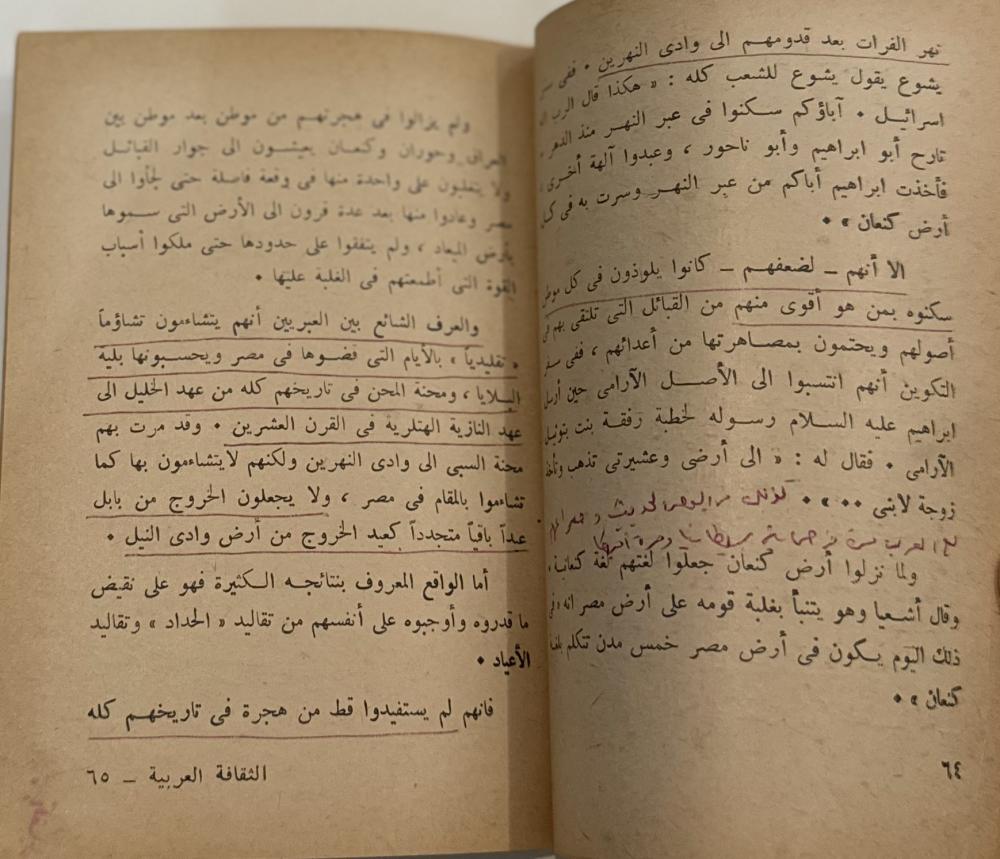 نهر الفرات بعد قدومهم الى وادى النهرين • ففى
يشوع يقول يشوع للشعب كله : « هكذا قال الرب
اسرائيل • آباؤكم سكنوا فى عبر النهر منذ الدهر •
تارح أبو ابراهيم وأبو ناحور ، وعبدوا آلهة أخرى ،
فأخذت ابراهيم أباكم من عبر النهر وسرت به فى كل
أرض كنعان » •
الا أنهم – لضعفهم – كانوا يلوذون فى كل موطن
سكنوه بمن هو أقوى منهم من القبائل التى تلتقى بهم فى
أصولهم ويحتمون بمصاهرتها من أعدائهم ، ففى سفر
التكوين أنهم انتسبوا الى الأصل الآرامى حين أرسل
ابراهيم عليه السلام رسوله لخطبة رفقة بنت بتوئيل
الآرامى • فقال له : « الى أرضى وعشيرتى تذهب وتأخذ
زوجة لابنى •• » •
كذلك الحديث
بريطانيا أمريكا
ولما نزلوا أرض كنعان جعلوا لغتهم لغة كنعانية ،
وقال أشعيا وهو يتنبأ بغلبة قومه على أرض مصر انه « فى
ذلك اليوم يكون فى أرض مصر خمس مدن تتكلم بلغة
كنعان » •
٦٤
ولم يزالوا فى هجرتهم من موطن بعد موطن بين
العراق وحوران وكنعان يعيشون الى جوار القبائل
ولا يتغلبون على واحدة منها فى وقعة فاصلة حتى لجأوا الى
مصر وعادوا منها بعد عدة قرون الى الأرض التى سموها
بأرض الميعاد ، ولم يتفقوا على حدودها حتى ملكوا أسباب
القوة التى أطمعتهم فى الغلبة عليها •
والعرف الشائع بين العبريين أنهم يتشاءمون تشاؤماً
« تقليدياً » بالأيام التى قضوها فى مصر ويحسبونها بلية
البلايا ، ومحنة المحن فى تاريخهم كله من عهد الخليل الى
عهد النازية الهتلرية فى القرن العشرين • وقد مرت بهم
محنة السبى الى وادى النهرين ولكنهم لايتشاءمون بها كما
تشاءموا بالمقام فى مصر ، ولا يجعلون الخروج من بابل
عيداً باقياً متجدداً كعيد الخروج من أرض وادى النيل •
أما الواقع المعروف بنتائجه الكثيرة فهو على نقيض
ما قدروه وأوجبوه على أنفسهم من تقاليد « الحداد » وتقاليد
الأعياد •
فانهم لم يستفيدوا قط من هجرة فى تاريخهم كله
الثقافة العربية – ٦٥